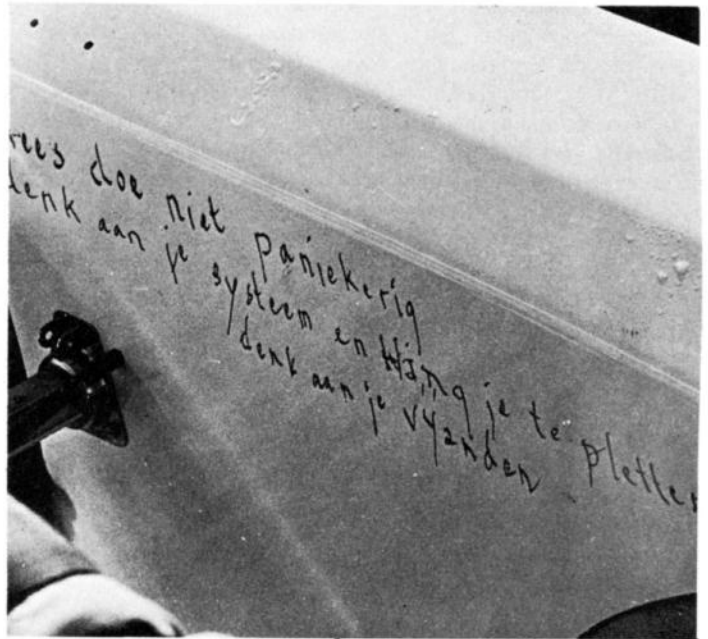 rees doe niet paniekerig
denk aan je systeem en Hang je te pletter
denk aan je vijanden